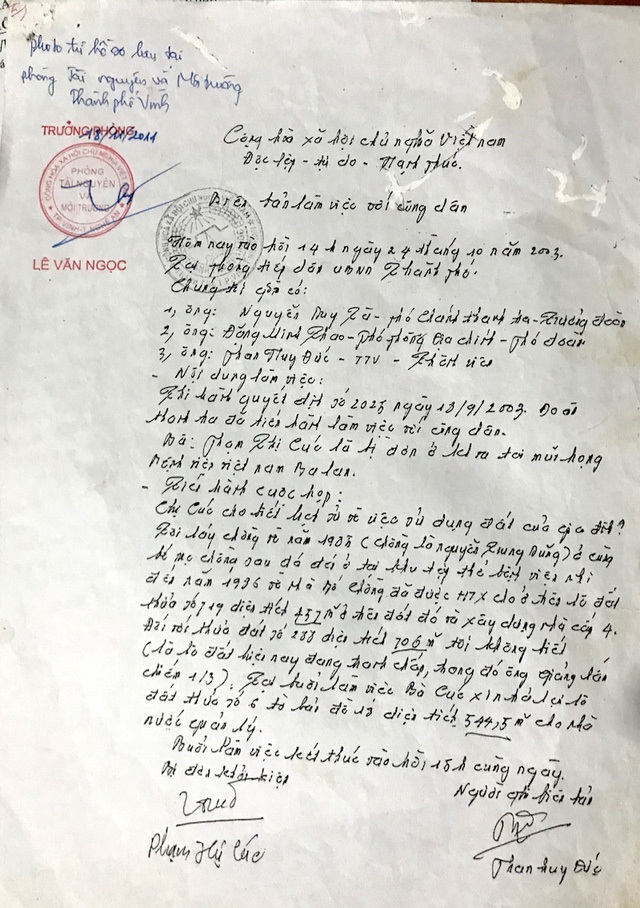 5)
photo từ hồ sơ lưu tại
phòng Tài nguyên và Môi trường
Thành phố Vinh
TRƯỞNG PHÒNG
18/11/2011
PHÒNG
TÀI NGUYÊN
VÀ
MÔI TRƯỜNG
LÊ VĂN NGỌC
Cộng hòa xã hội chủ nghĩa Việt nam
Độc lập - tự do - Hạnh phúc.
Biên bản làm việc với công dân
Hôm nay vào hồi 14h ngày 24 tháng 10 năm 2003.
Tại phòng tiếp dân UBND Thành phố.
Chúng tôi gồm có:
1, ông: Nguyễn Duy - phó Chánh thanh tra - Trưởng đoàn
2, ông: Đặng Minh - phó phòng Địa chính - phó đoàn
3, ông: Phan Huy Đức - TTV - Thành viên
- Nội dung làm việc:
Thi hành quyết định số 2025 ngày 13/9/2003. Đoàn
thanh tra đã tiến hành làm việc với công dân.
Bà: Phạm Thị Cúc là bị đơn ở khoa tai mũi họng
Bệnh viện việt nam Ba lan.
- Tiến hành cuộc họp:
Chị Cúc cho biết lịch sử về việc sử dụng đất của gia đình?
Tôi lấy chồng về năm 1985 (chồng là nguyễn Trung Dũng) ở cùng
bố mẹ chồng sau đó dời ở tại khu tập thể bệnh viện nhi
đến năm 1996 về nhà bố chồng đã được HTX cho ở trên lô đất
thửa số 719 diện tích 457 m² ở trên đất đó và xây dựng nhà cấp 4.
Đối với thửa đất số 288 diện tích 706 m² tôi không biết
(là lô đất hiện nay đang tranh chấp, trong đó ông giảng lấn
chiếm 1/3). Tại buổi làm việc Bà Cúc xin trả lại lô
đất thửa số 6 tờ bản đồ 18 diện tích 544,5 m² cho nhà
nước quản lý.
Buổi làm việc kết thúc vào hồi 15h cùng ngày.
Bị đơn khởi kiện
Người ghi biên bản
Phạm Thị Cúc
Phan huy Đức